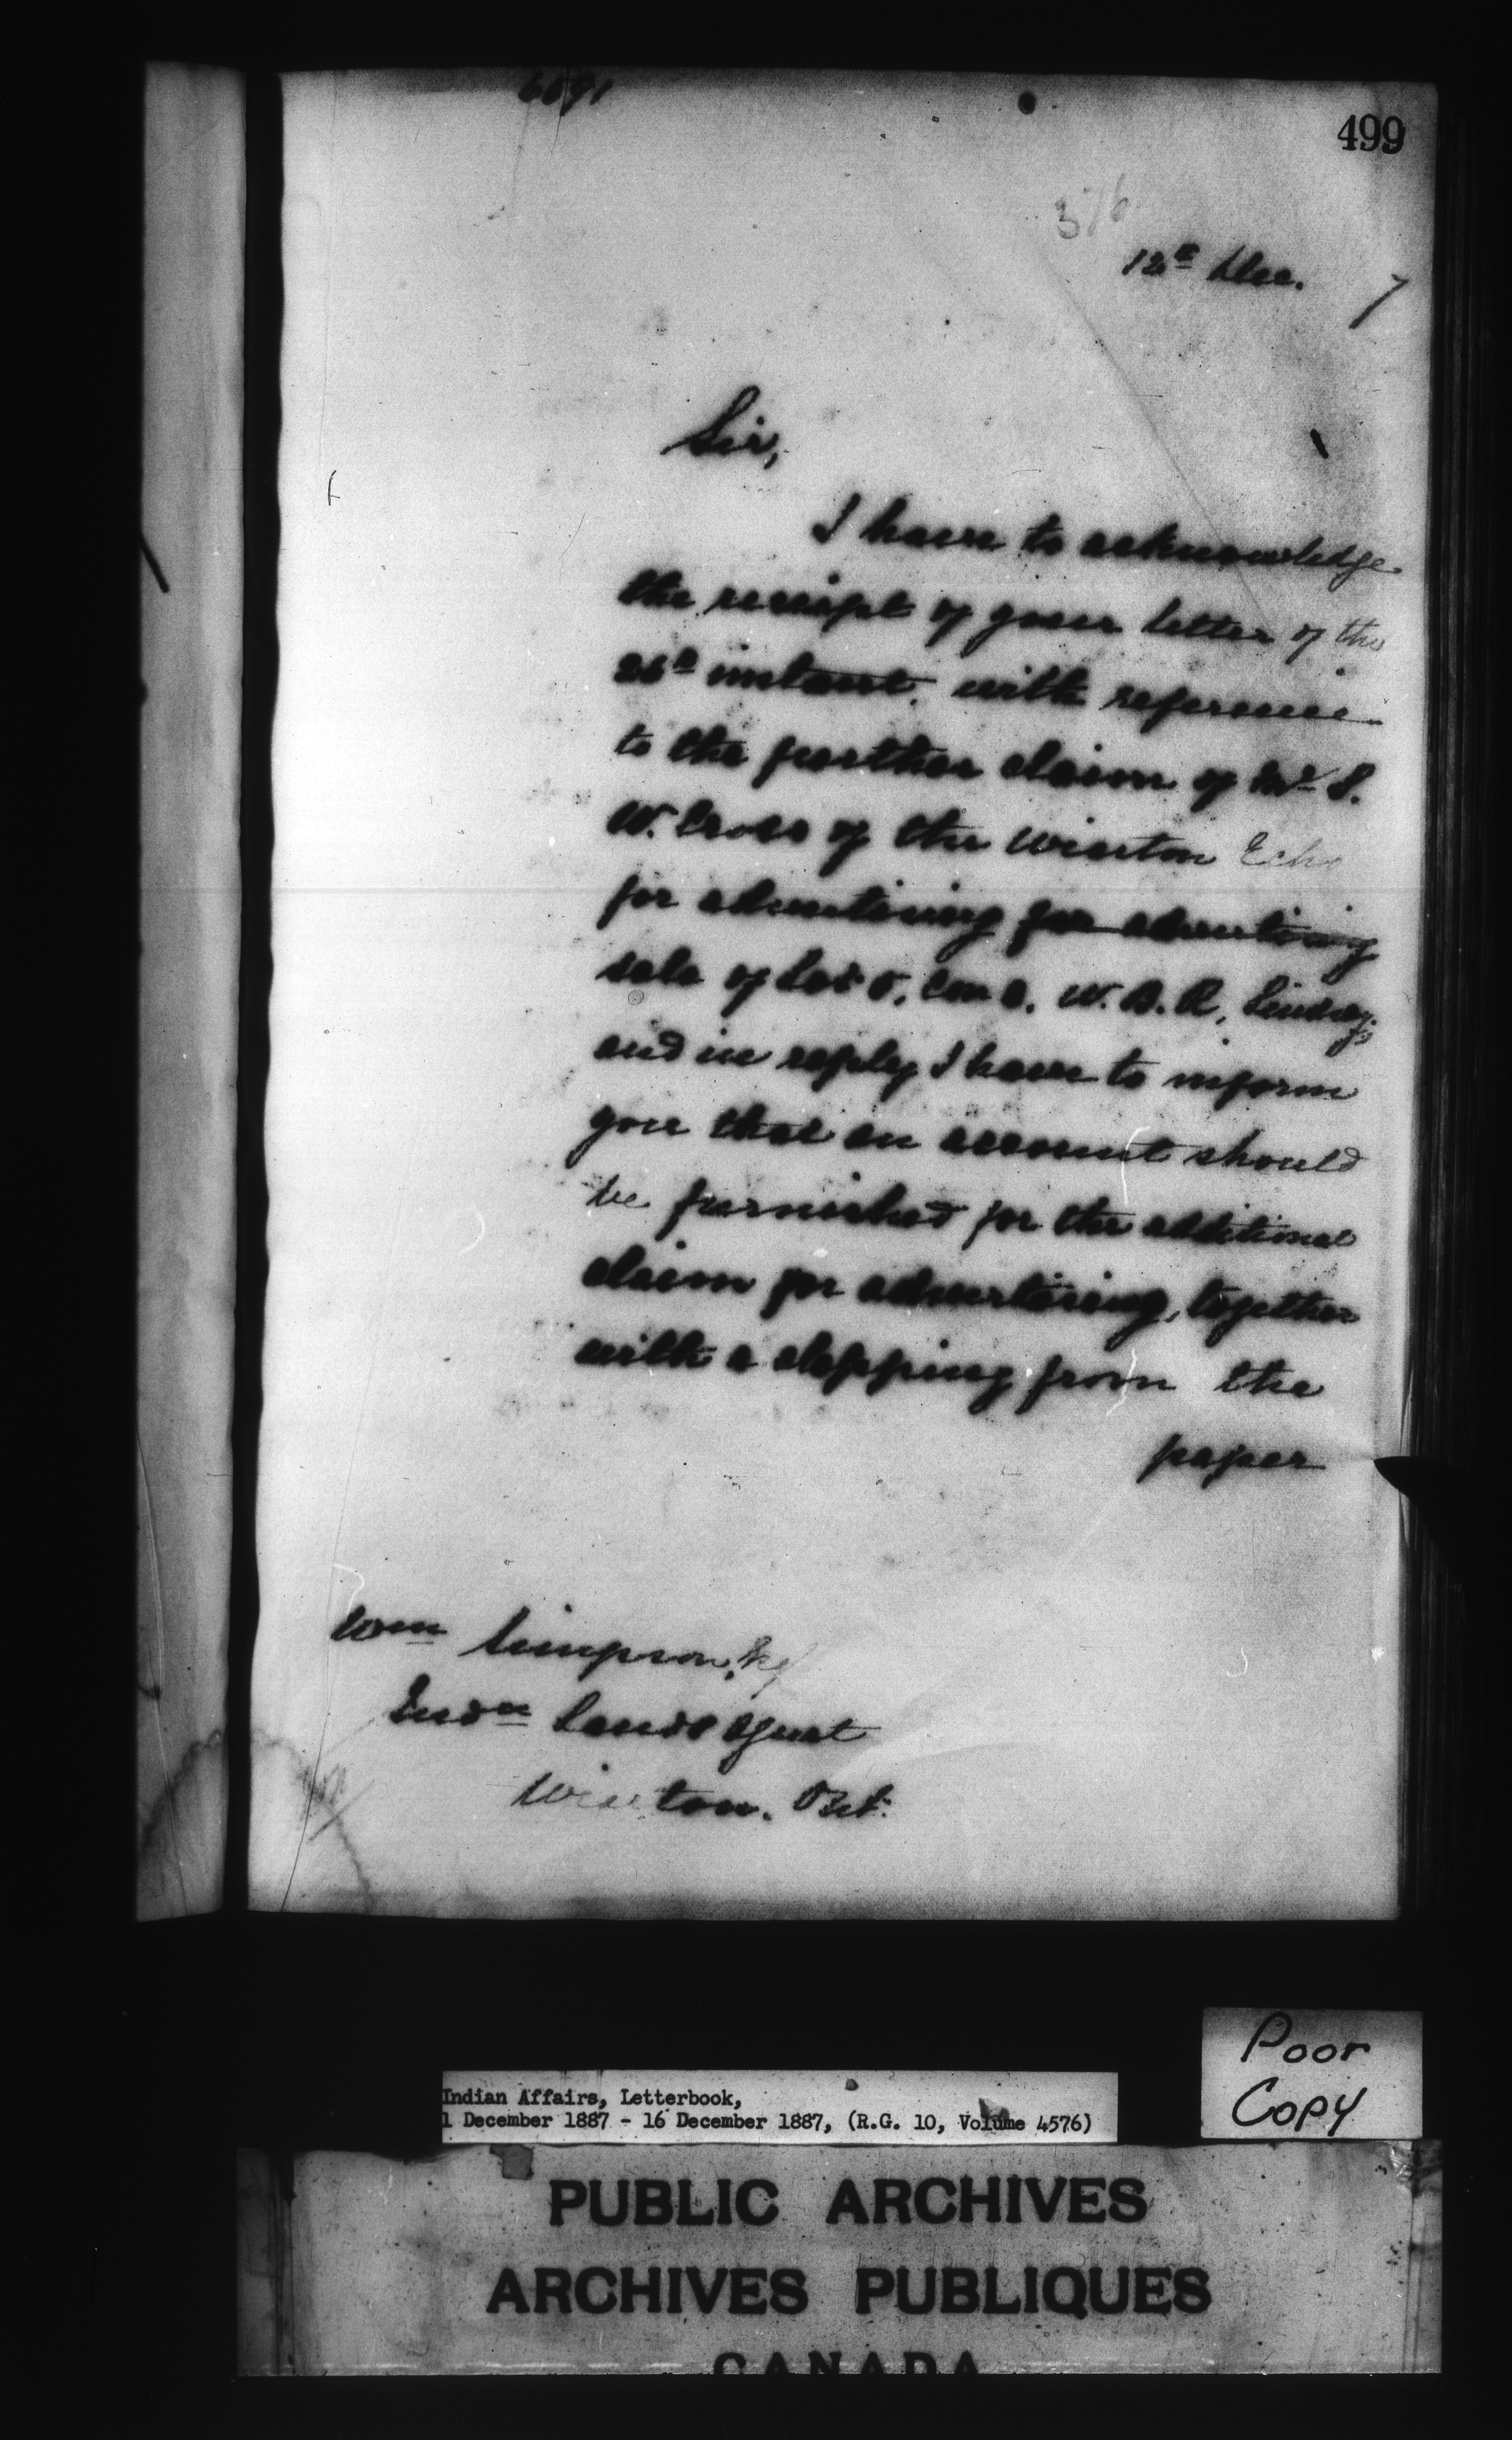 6691
499
376
12th Dec. 7
Sir,
I have to acknowledge
the receipt of your letter of the
26th instant, with reference
to the further claim of Mr. S.
W. Cross of the Wiarton Echo
for advertising for advertising
sale of Lot 5, Con. W. B. R, Lindsay,
and in reply I have to inform
you that an account should
be furnished for the additional
claim for advertising, together
with a clipping from the
paper
Wm Simpson, Esq
Indn Lands Agent
Wiarton. Ont.
Poor
Copy
Indian Affairs, Letterbook,
1 December 1887 - 16 December 1887, (R.G. 10, Volume 4576)
PUBLIC ARCHIVES
ARCHIVES PUBLIQUES
CANADA